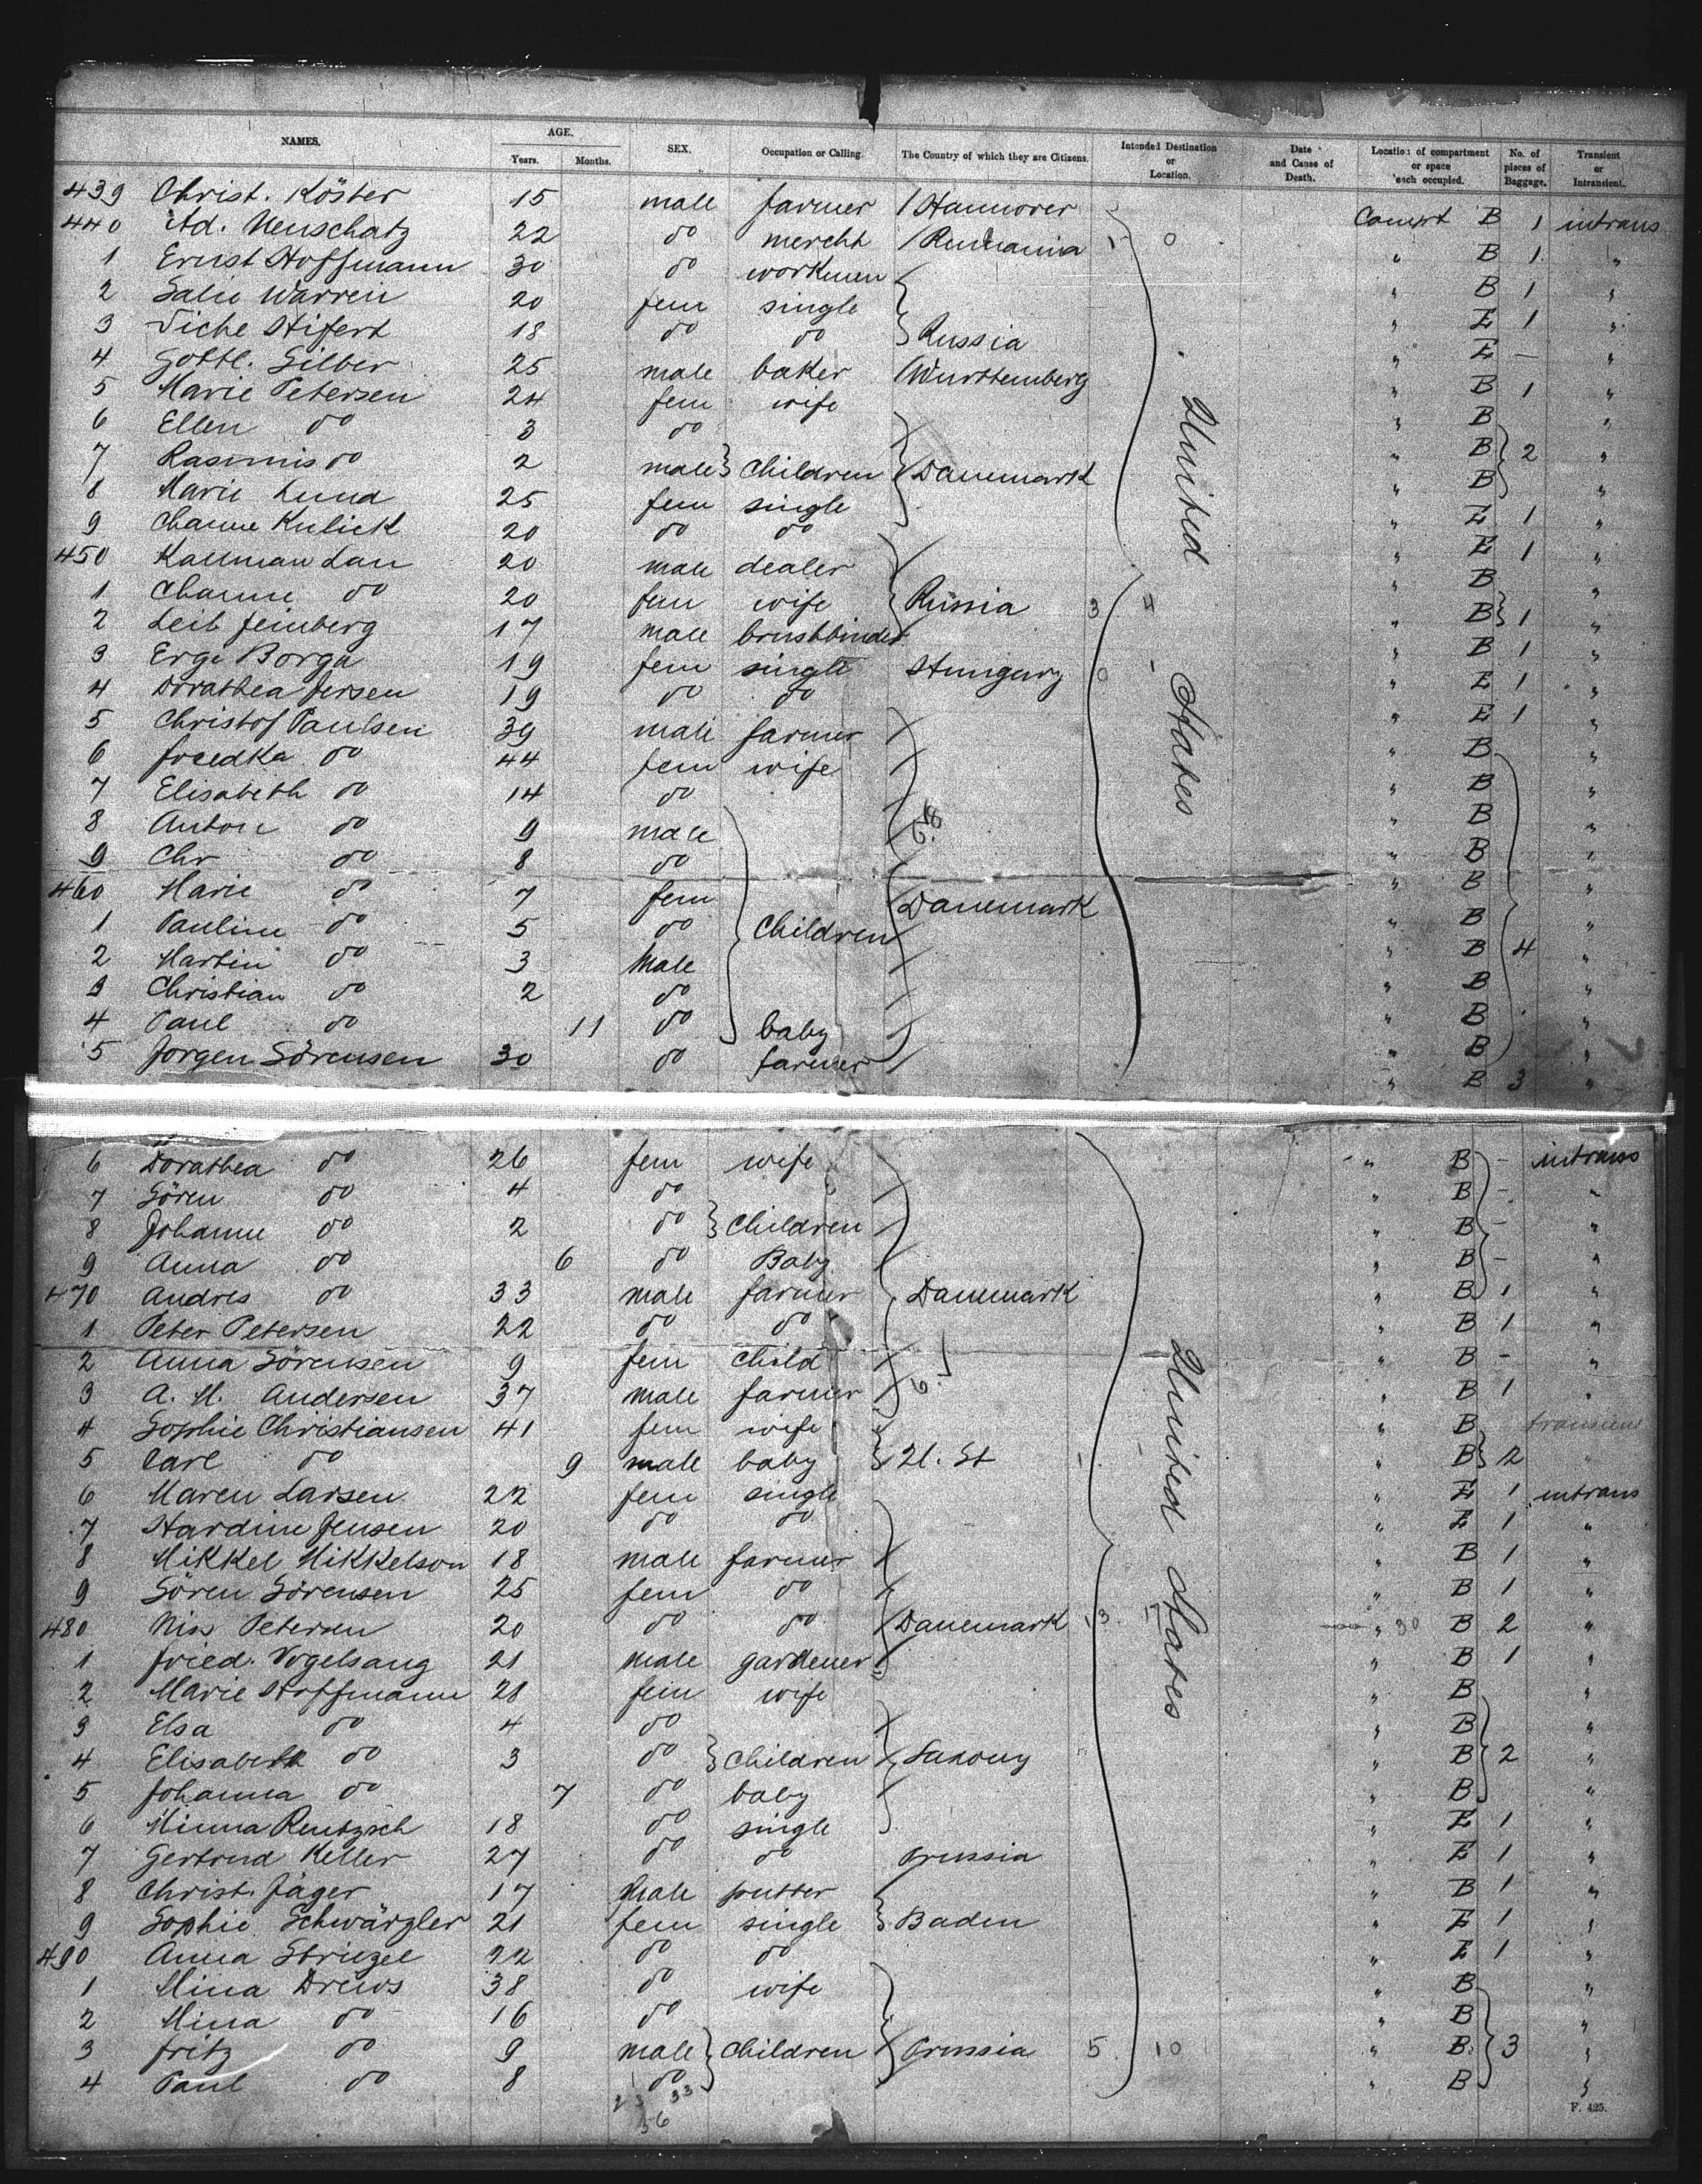 NAMES. AGE. Years. Months. SEX. Occupation or Calling. The Country of which they are Citizens. Intended Destination or Location. Date and Cause of Death. Location of compartment or space each occupied. No. of pieces of Baggage. Transient or Intransient.
439 Christ. Köster 15 male farmer Hannover B 1 intrans
440 Ad. Neuschatz 22 do mercht Rumania 0 " B 1 "
1 Ernst Hoffmann 30 do workmen " B 1 "
2 Salie Warren 20 fem single " E 1 "
3 Stifert 18 do do Russia " E — "
4 Gottl. Silber 25 male baker Württemberg " B 1 "
5 Marie Petersen 24 fem wife " B "
6 Ellen do 3 do " B 2 "
7 Rasmus do 2 male children Danemark " B "
8 Marie Lund 25 fem single " E 1 "
9 Channe Kulick 20 do do " E 1 "
450 Kallman Lan 20 male dealer " B "
1 Channe do 20 fem wife Russia 3 4 " B 1 "
2 Leib Feinberg 17 male brushbinder " B 1 "
3 Borga 19 fem single Hungary 0 " E 1 "
4 Dorathea Jersen 19 do do " E 1 "
5 Christof Paulsen 39 male farmer " B "
6 do 44 fem wife " B "
7 Elisabeth do 14 do " B "
8 Anton do 9 male " B "
9 Chr do 8 do " B "
460 Marie do 7 fem Danemark " B "
1 Pauline do 5 do Children " B 4 "
2 Martin do 3 Male " B "
3 Christian do 2 do " B "
4 Paul do 11 do baby " B "
5 Jorgen Sörensen 30 do farmer " B 3 "
United States
6 Dorathea do 26 fem wife " B - intrans
7 Sören do 4 do " B - "
8 Johanne do 2 do children " B - "
9 Anna do 6 do Baby " B - "
470 Andres do 33 male farmer Danemark " B 1 "
1 Peter Petersen 22 do do " B 1 "
2 Anna Sörensen 9 fem child " B - "
3 A. M. Andersen 37 male farmer " B 1 "
4 Sophie Christiansen 41 fem wife " B transient
5 Carl do 9 male baby U. St 1 " B 2 "
6 Maren Larsen 22 fem single " E 1 intrans
7 Hardine Jensen 20 do do " E 1 "
8 Mikkel Mikkelson 18 male farmer " B 1 "
9 Sören Sörensen 25 fem do " B 1 "
480 Niss Petersen 20 do do Danemark 13 " 30 B 2 "
1 Fried. Vogelsang 21 male gardener " B 1 "
2 Marie Hoffmann 28 fem wife " B "
3 Elsa do 4 do " B "
4 Elisabeth do 3 do children Saxony " B 2 "
5 Johanna do 7 do baby " B "
6 Minna Rentzsch 18 do single " E 1 "
7 Gertrud Keller 27 do do Prussia " E 1 "
8 Christ. Jäger 17 Male putter " B 1 "
9 Sophie Schwärzler 21 fem single Baden " E 1 "
490 Anna Strinzel 22 do do " E 1 "
1 Mina Drews 38 do wife " B "
2 Mina do 16 do " B "
3 Fritz do 9 male children Prussia 5 10 " B 3 "
4 Paul do 8 do " B "
United States
23 33
56
F. 425.